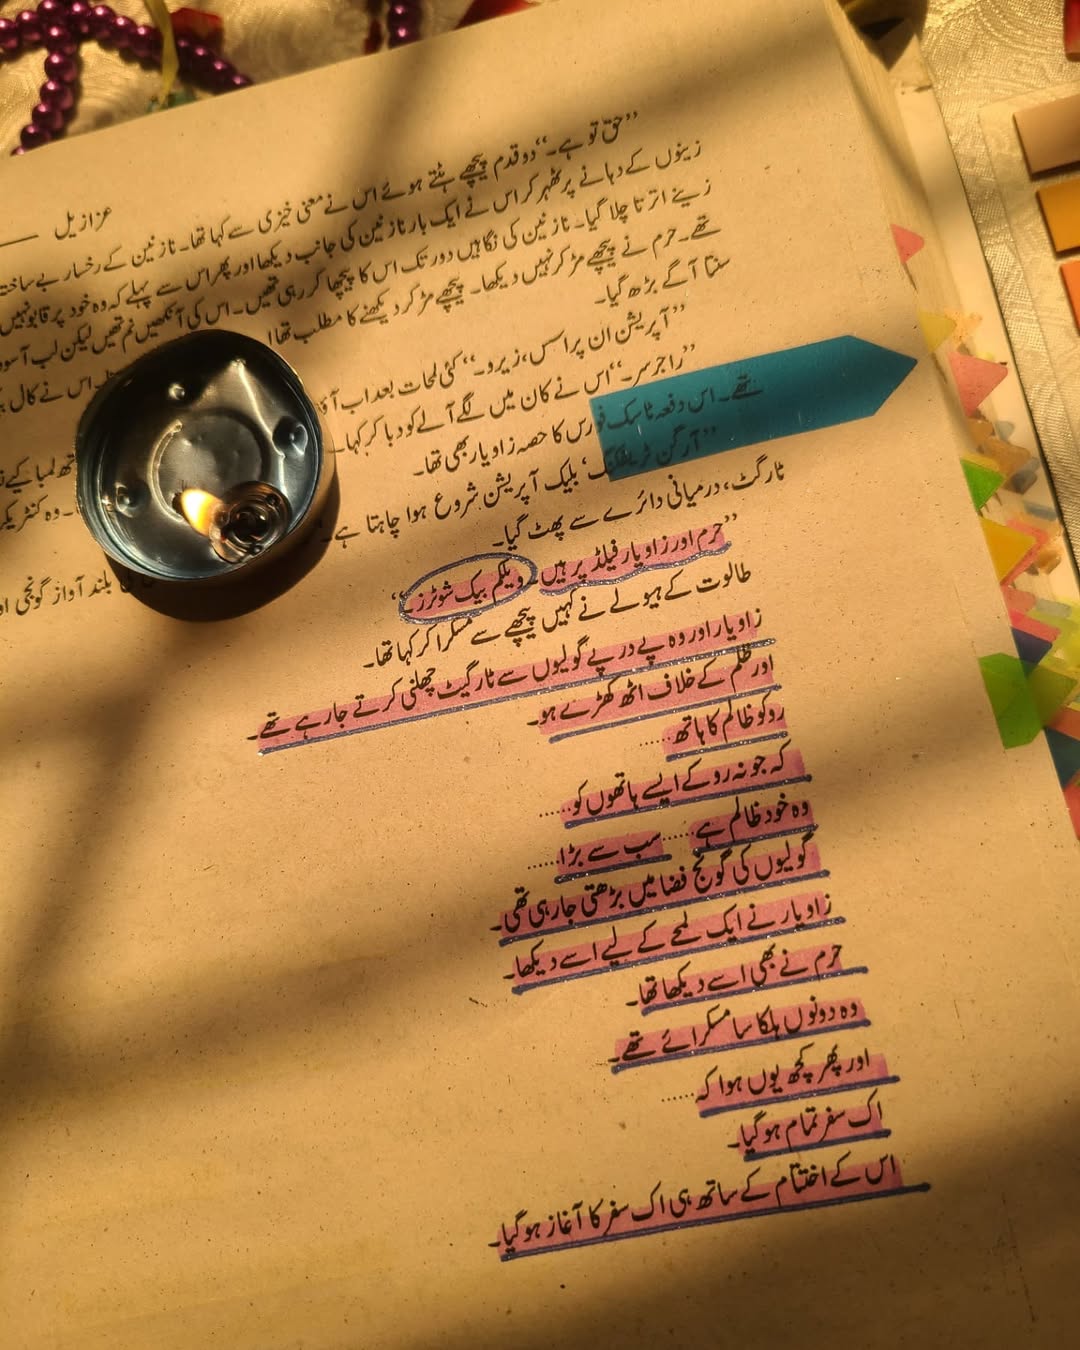 عزازیل
”حق تو ہے۔“ دو قدم پیچھے ہٹتے ہوئے اس نے معنی خیزی سے کہا تھا۔ نازنین کے رخسار بے ساختہ
زینوں کے دہانے پر ٹھہر کر اس نے ایک بار نازنین کی جانب دیکھا اور پھر اس سے پہلے کہ وہ خود پر قابو نہیں
زینے اترتا چلا گیا۔ نازنین کی نگاہیں دور تک اس کا پیچھا کر رہی تھیں۔ اس کی آنکھیں نم تھیں لیکن لب آسودہ
تھے۔ حرم نے پیچھے مڑ کر نہیں دیکھا۔ پیچھے مڑ کر دیکھنے کا مطلب تھا اس نے کال
سنتا آگے بڑھ گیا۔
”آپریشن ان پراسس، زیرو۔“ کئی لمحات بعد اب
”راجر سر۔“ اس نے کان میں لگے آلے کو دبا کر کہا۔
تھے۔ اس دفعہ ٹاسک فورس کا حصہ زاویار بھی تھا۔
”آرگن ٹریفکنگ‘ بلیک آپریشن شروع ہوا چاہتا ہے۔ بلند آواز گونجی
ٹارگٹ، درمیانی دائرے سے پھٹ گیا۔
”حرم اور زاویار فیلڈ پر ہیں۔ ویلکم بیک شوٹرز۔“
طالوت کے ہیولے نے کہیں پیچھے سے مسکرا کر کہا تھا۔
زاویار اور وہ پے در پے گولیوں سے ٹارگیٹ چھلنی کرتے جا رہے تھے۔
اور ظلم کے خلاف اٹھ کھڑے ہو۔
روکو ظالم کا ہاتھ......
کہ جو نہ روکے ایسے ہاتھوں کو......
وہ خود ظالم ہے...... سب سے بڑا......
گولیوں کی گونج فضا میں بڑھتی جا رہی تھی۔
زاویار نے ایک لمحے کے لیے اسے دیکھا۔
حرم نے بھی اسے دیکھا تھا۔
وہ دونوں ہلکا سا مسکرائے تھے۔
اور پھر کچھ یوں ہوا کہ......
اک سفر تمام ہو گیا۔
اس کے اختتام کے ساتھ ہی اک سفر کا آغاز ہو گیا۔